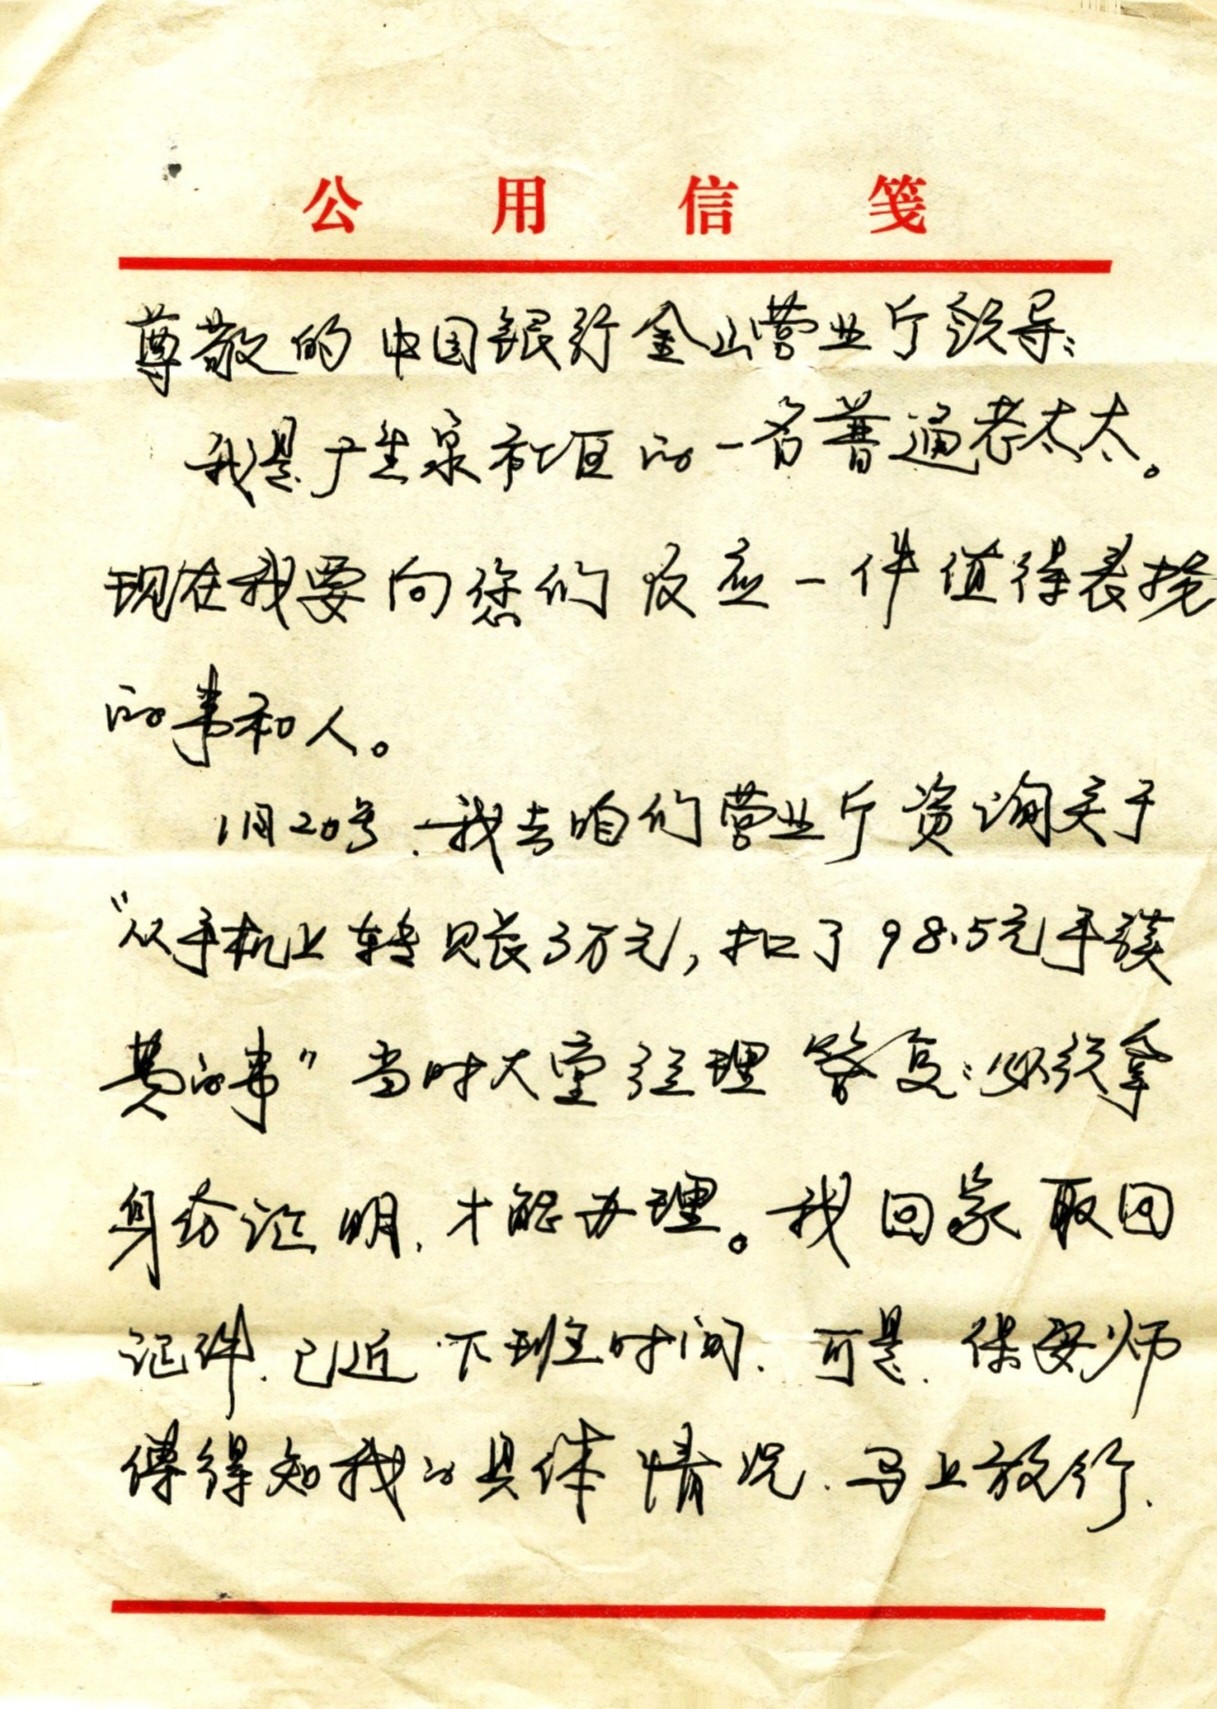 公用信笺
尊敬的中国银行金山营业厅领导：
我是广生泉社区的一名普通老太太。
现在我要向您们反应一件值得表扬
的事和人。
1月20号，我去咱们营业厅资询关于
“从手机上转账3万元，扣了98.5元手续
费的事”当时大堂经理答复：必须拿
身份证明，才能办理。我回家取回
证件，已近下班时间，可是，保安师
傅得知我的具体情况，马上放行，